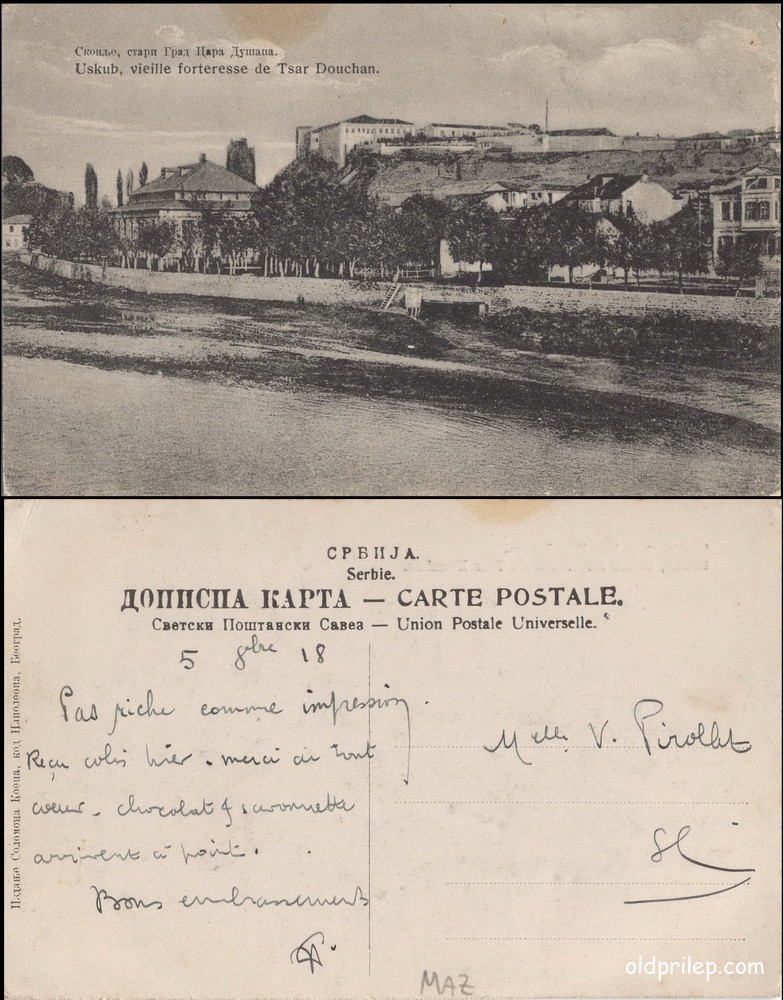 Скопље, стари Град Цара Душана.
Uskub, vieille forteresse de Tsar Douchan.
СРБИЈА.
Serbie.
ДОПИСНА КАРТА — CARTE POSTALE.
Светски Поштански Савез — Union Postale Universelle.
Издање Соломона Коена, код Наполеона, Београд.
5 9bre 18
Pas riche comme impression.
Reçu colis hier. merci de tout
coeur. chocolat & savonnette
arrivent à point.
Bons embrassements
Melle V. Pirollet
MAZ
oldprilep.com